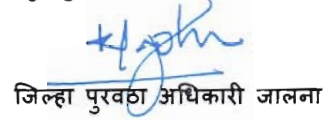 जिल्हा पुरवठा अधिकारी जालना